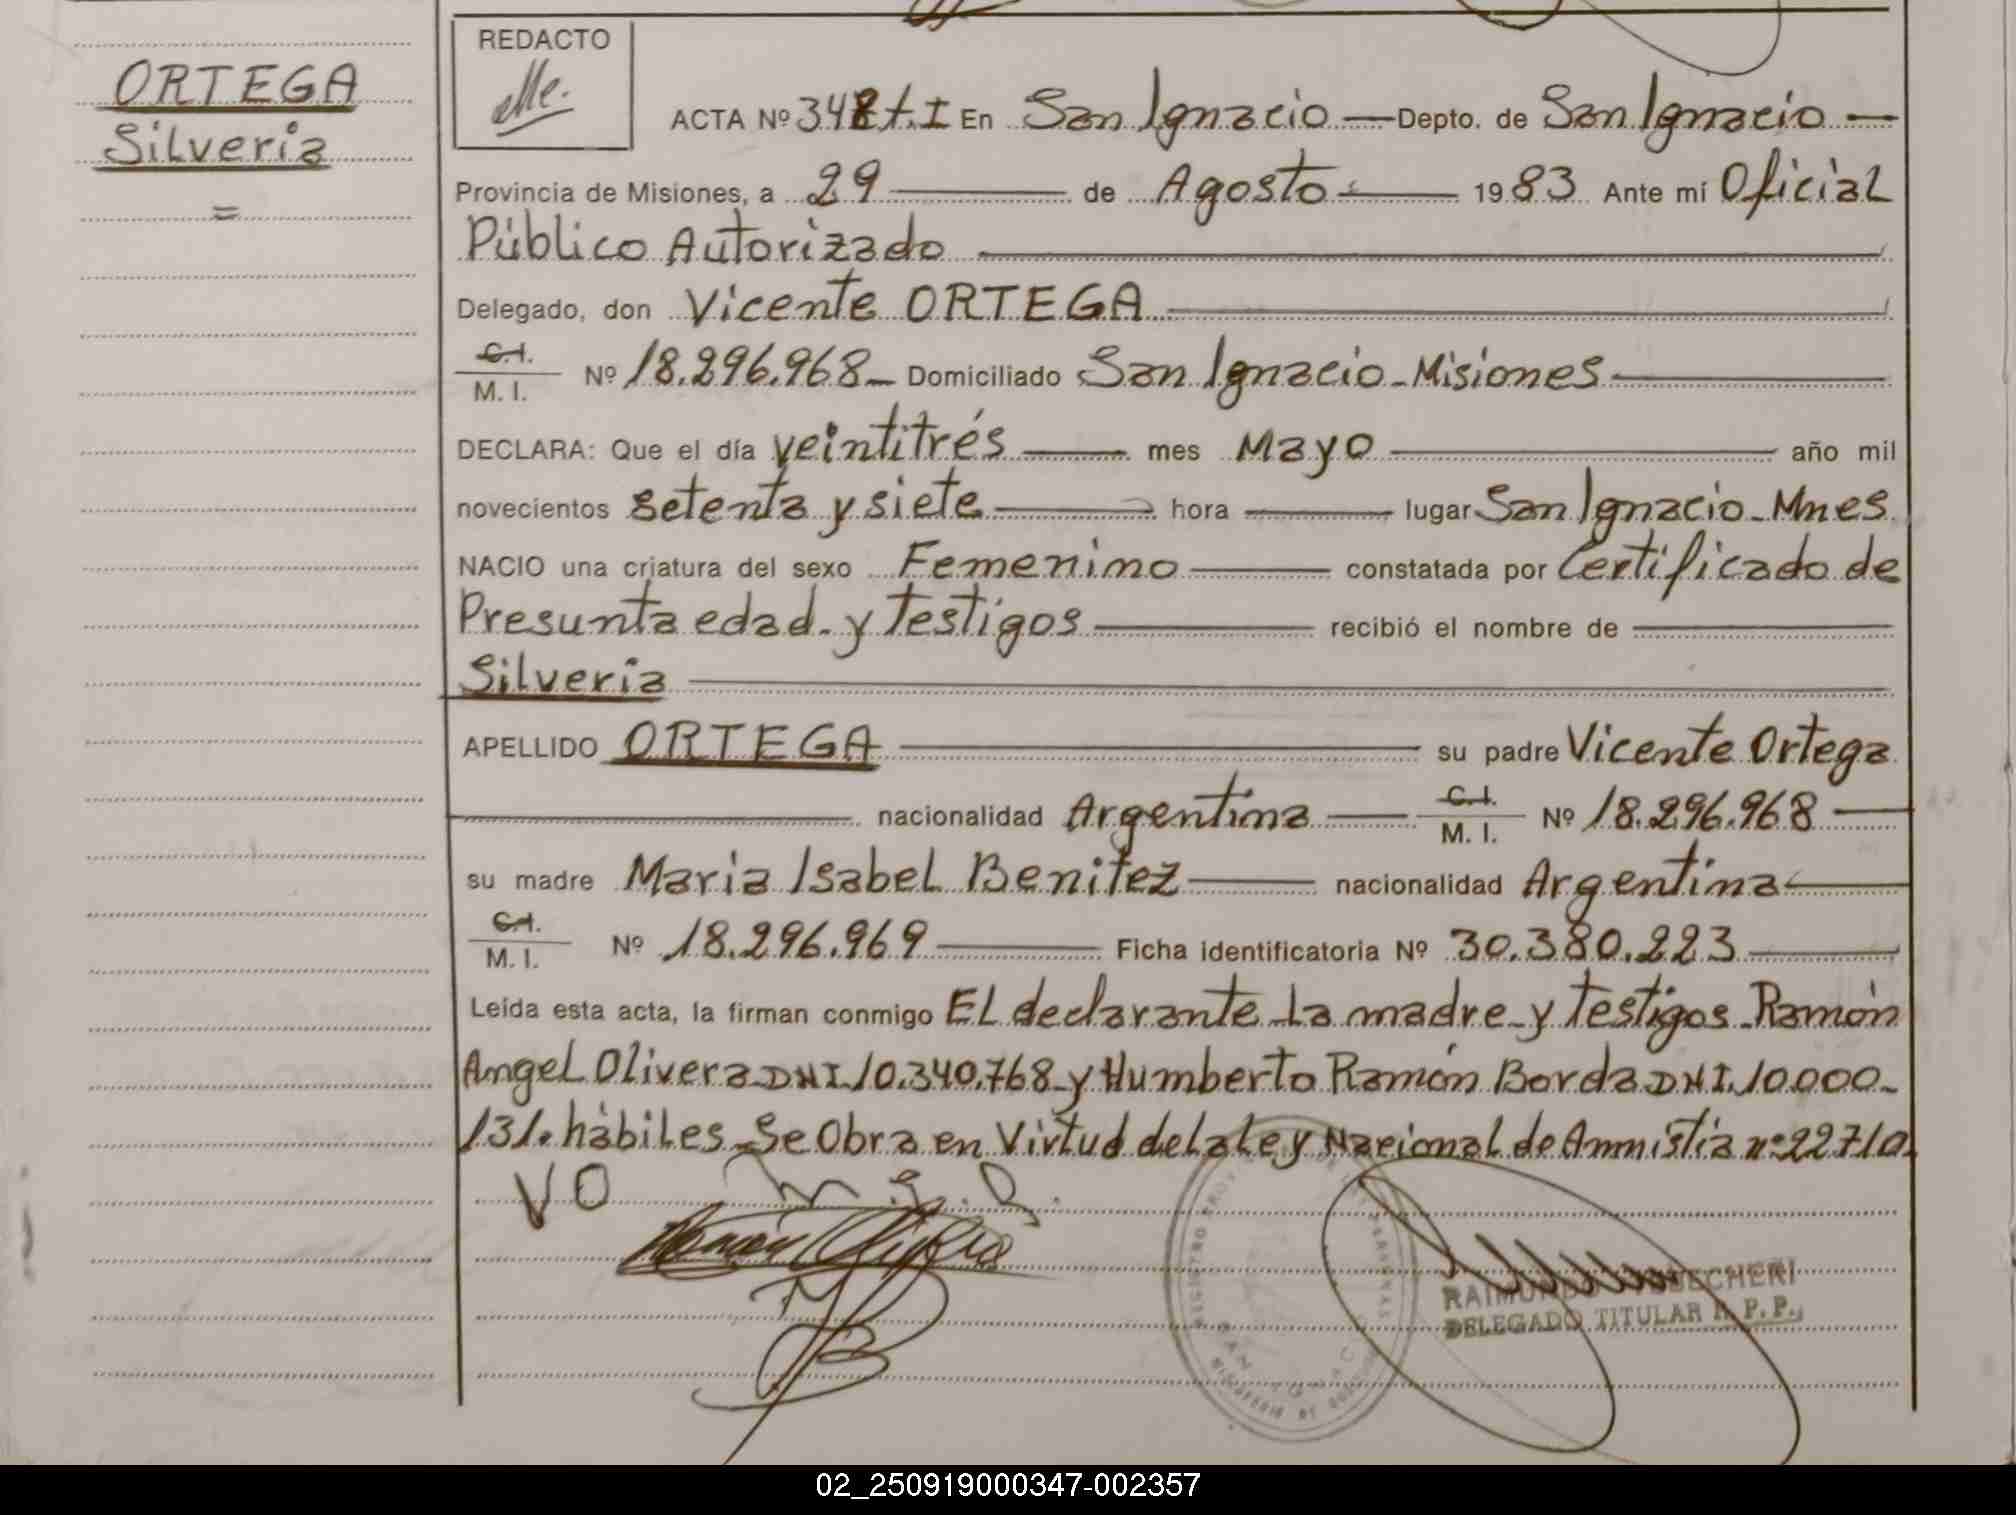 ORTEGA
Silveria
=
REDACTO
ACTA Nº 348 t. I En San Ignacio — Depto. de San Ignacio —
Provincia de Misiones, a 29 — de Agosto — 1983 Ante mí Oficial
Público Autorizado
Delegado, don Vicente ORTEGA
C.I.
M. I. Nº 18.296.968 – Domiciliado San Ignacio - Misiones
DECLARA: Que el día veintitrés — mes Mayo — año mil
novecientos setenta y siete — hora — lugar San Ignacio - Mnes
NACIO una criatura del sexo Femenino — constatada por Certificado de
Presunta edad. y testigos — recibió el nombre de —
Silveria
APELLIDO ORTEGA — su padre Vicente Ortega
— nacionalidad Argentina — C.I. M. I. Nº 18.296.968 —
su madre Maria Isabel Benitez — nacionalidad Argentina —
C.I.
M. I. Nº 18.296.969 — Ficha identificatoria Nº 30.380.223 —
Leída esta acta, la firman conmigo El declarante - la madre - y testigos - Ramón
Angel Olivera DNI. 10.340.768 - y Humberto Ramón Borda DNI. 10.000-
131. hábiles - Se Obra en Virtud de la Ley Nacional de Amnistia nº 22710
VO
DELEGADO TITULAR R. P. P.
02_250919000347-002357